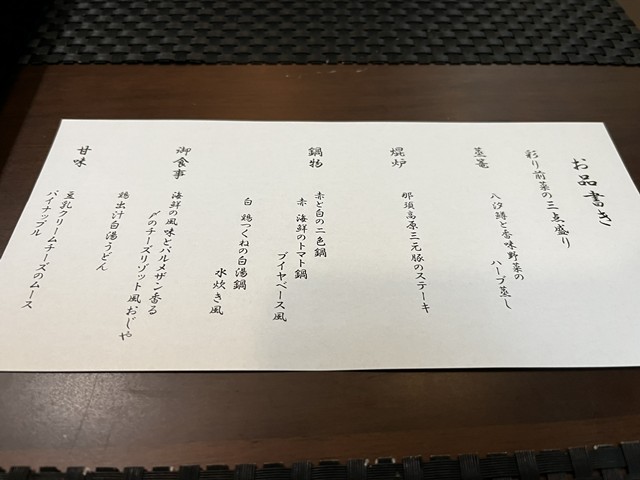 お品書き
彩り前菜の三点盛り
蒸篭
八汐鱒と香味野菜の
ハーブ蒸し
焜炉
那須高原三元豚のステーキ
鍋物
赤と白の二色鍋
赤 海鮮のトマト鍋
ブイヤベース風
白 鶏つくねの白湯鍋
水炊き風
御食事
海鮮の風味とパルメザン香る
〆のチーズリゾット風おじや
鶏出汁白湯うどん
甘味
豆乳クリームチーズのムース
パイナップル